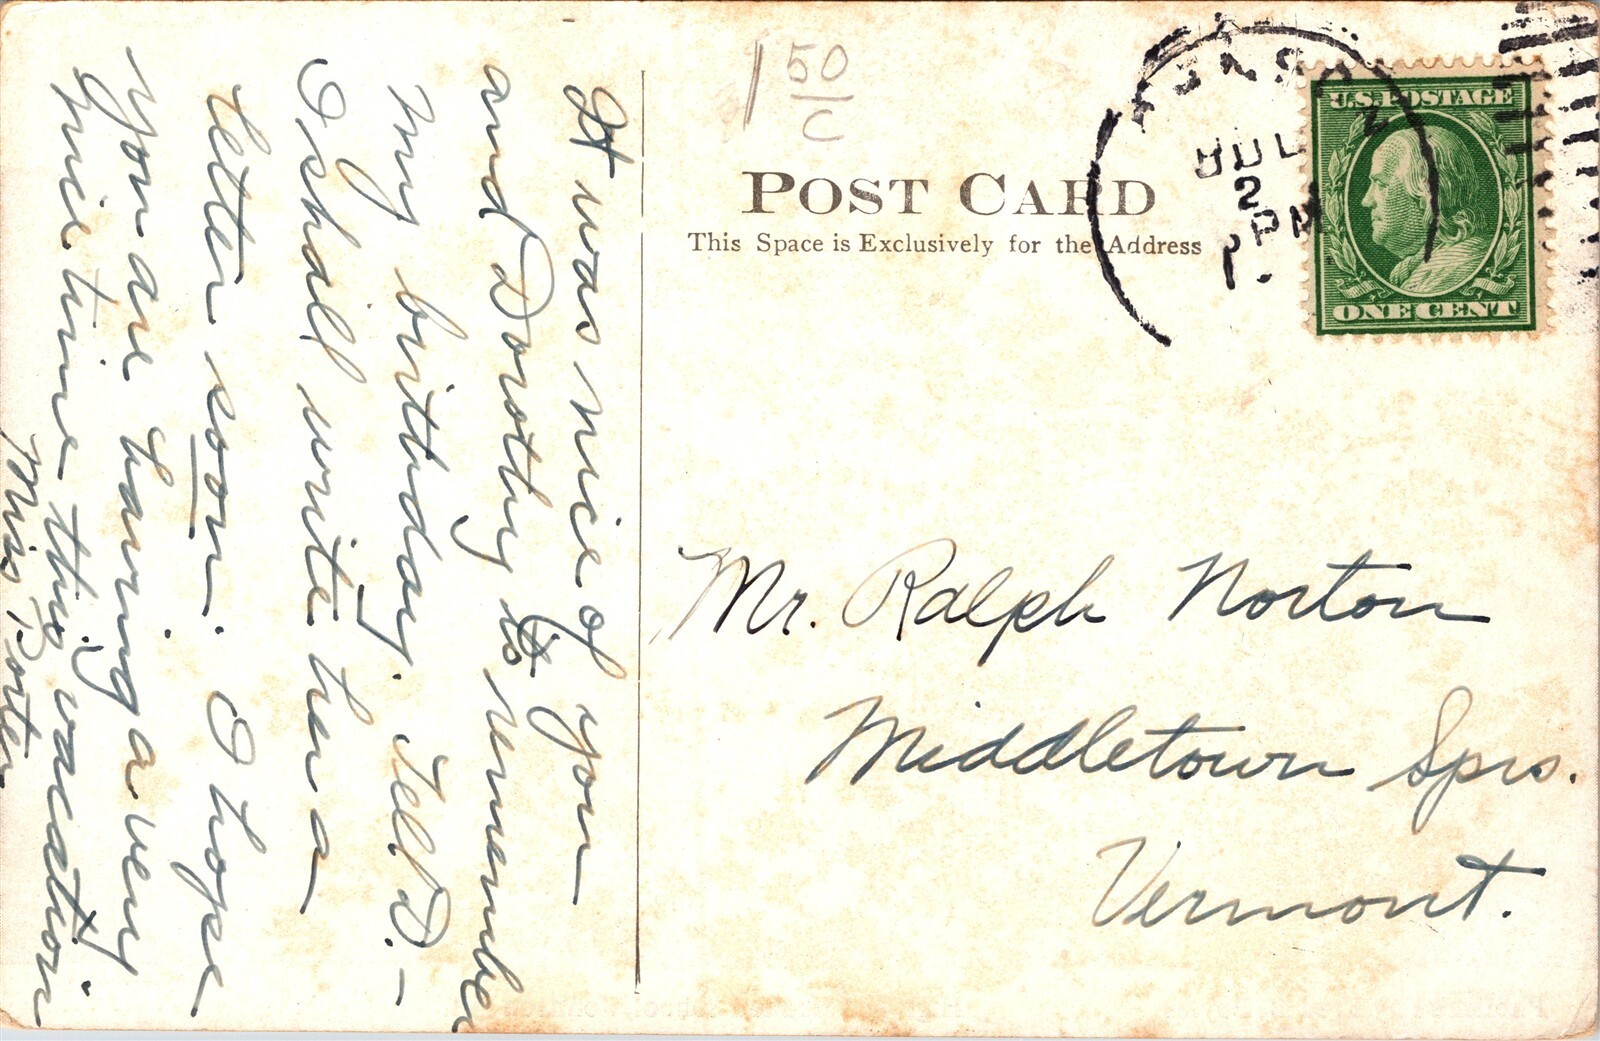 It was nice of you
and Dorothy to remember
my birthday. Tell D. –
I shall write her a
letter soon. I hope
you are having a very
nice time this vacation.
Miss Porter
1 50
C
POST CARD
This Space is Exclusively for the Address
JUL
2
PM
U.S. POSTAGE
ONE CENT
Mr. Ralph Norton
Middletown Sprs.
Vermont.